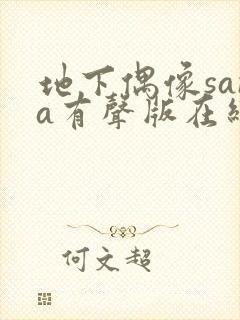 地下偶像sa
a有聲版在
何文超